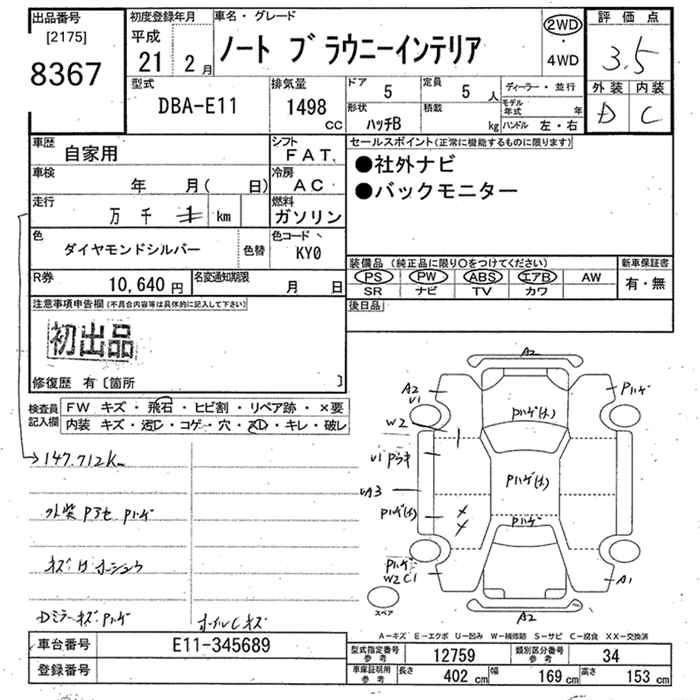 出品番号 初度登録年月 車名・グレード 評価点
[2175] 平成 2WD
8367 21 2月 ノート ブラウニーインテリア ・ 3.5
4WD
型式 排気量 ドア 5 定員 5人 ディーラー・並行 外装 内装
DBA-E11 1498cc 形状 ハッチB 積載 kg モデル年式 年 D C
ハンドル 左・右
車歴 自家用 シフト FAT セールスポイント(正常に機能するものに限ります)
車検 年 月( 日) 冷房 AC ●社外ナビ
走行 万 千 km 燃料 ガソリン ●バックモニター
色 ダイヤモンドシルバー 色替 色コード KY0
装備品(純正品に限り○をつけてください) 新車保証書
R券 10,640円 名変通知期限 月 日 PS PW ABS エアB AW 有・無
SR ナビ TV カワ
注意事項申告欄(不具合内容等は具体的に記入して下さい) 後日品
初出品
修復歴 有〔箇所 〕
検査員記入欄 FW キズ・飛石・ヒビ割・リペア跡・×要
内装 キズ・汚レ・コゲ・穴・スレ・キレ・破レ
147.712K
A2
A2 U1 Pハゲ
W2 Pハゲ(大)
U1
UA3 Pハゲ(大)
Pハゲ(大) Pハゲ
Pハゲ
W2 C1 A1
スペア A2
Dミラーキズ Pハゲ
A-キズ E-エクボ U-凹み W-補修跡 S-サビ C-腐食 XX-交換済
車台番号 E11-345689 型式指定番号 参考 12759 類別区分番号 参考 34
登録番号 車庫証明用 参考 長さ 402cm 幅 169cm 高さ 153cm